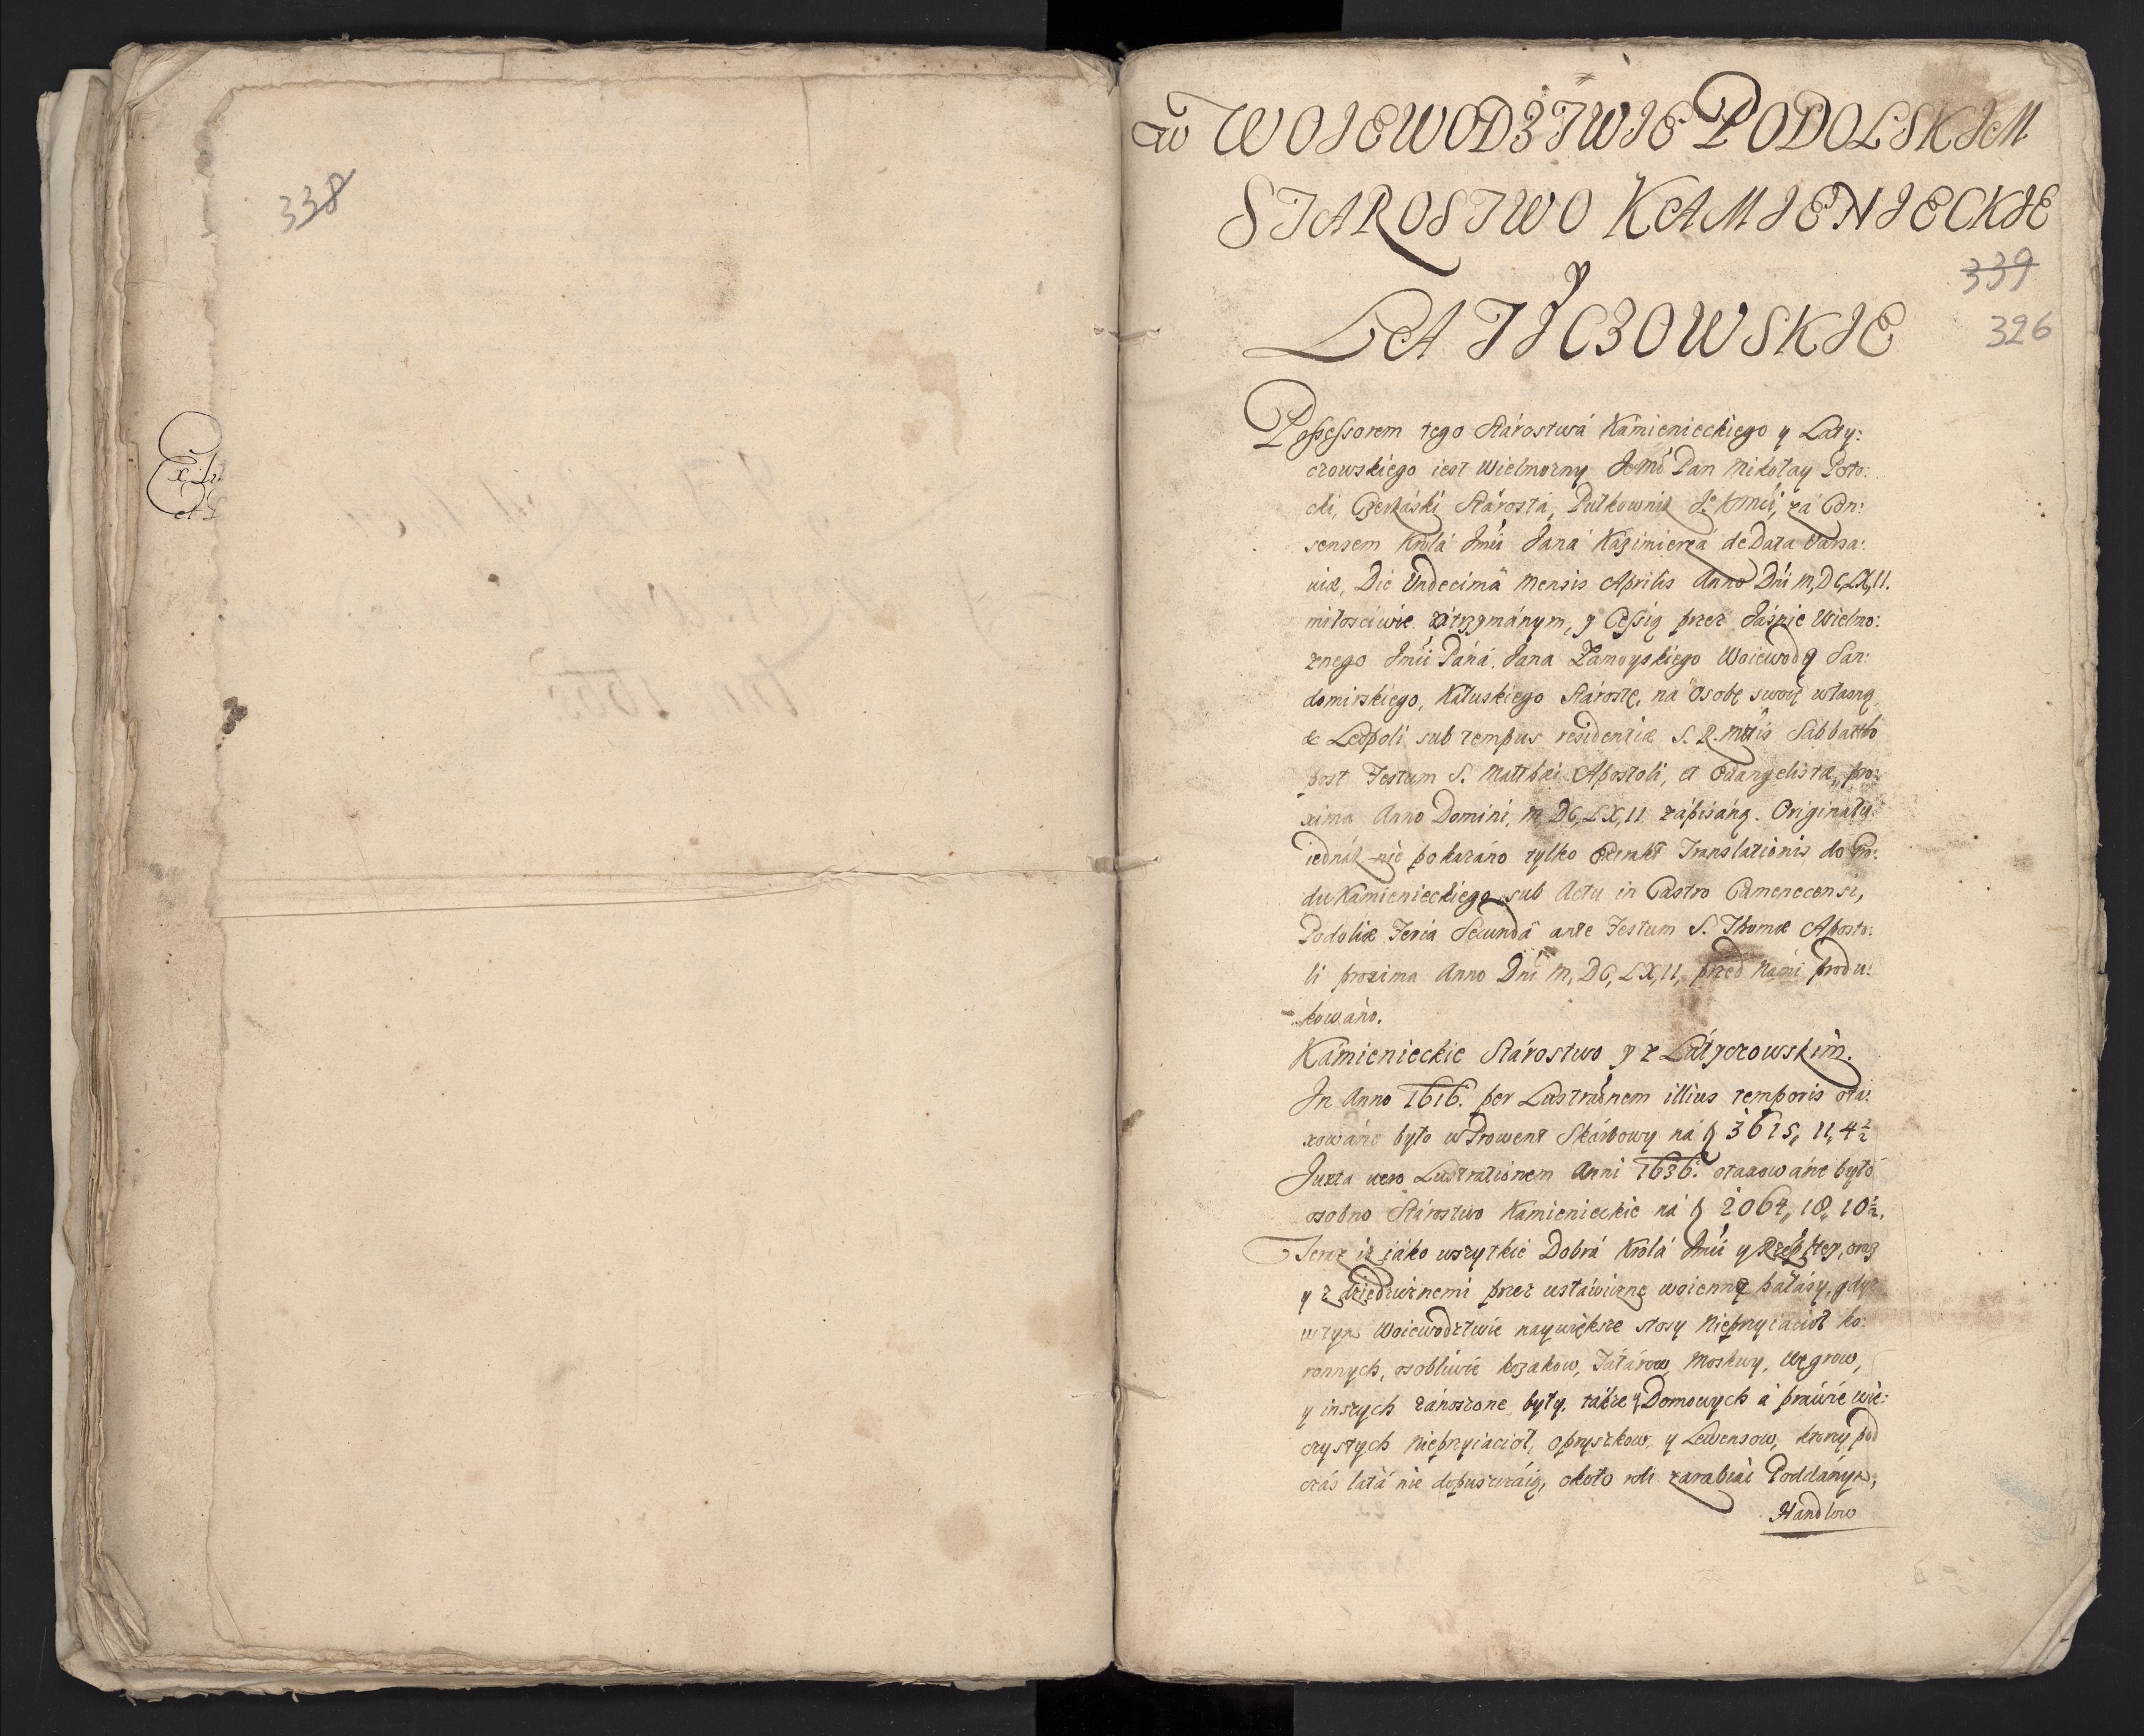 338
w WOJEWODZTWJE PODOLSKJEM
STAROSTWO KAMJENJECKJE
y
LATYCZOWSKJE
339
326
Possessorem tego Stárostwá Kámienieckiego y Laty:
czowskiego iest Wielmozny Jemć Pan Mikołay Poto:
cki, Czerkáski Stárostá, Pułkownik J. K Mći, zá Con:
sensem Krolá Jmći Janá Kazimierzá de Data Varsa:
viæ, Die Undecimâ Mensis Aprilis Anno Dni M,DC,LX,II.
miłosciwie otrzymánym, y Cessią przez Jáśnie Wielmo:
znego Jmći Páná Jana Zamoyskiego Woiewodę San:
domirskiego, Káłuskiego Stárostę, ná Osobę swoię własną
Leopoli sub tempus residentiæ S. R. Mttis Sabbatho
post Festum S. Matthæi Apostoli, et Evangelistæ, pro:
xima Anno Domini, M DC, LX, II zápisáną. Originału
iednák nie pokazáno tylko Extrakt Translationis do Gro:
du Kámienieckiego sub Actu in Castro Camenecensi,
Podoliæ Feria Secundâ ante Festum S. Thomæ Aposto:
li proxima Anno Dni M, DC, LX, II, przed Námi produ:
kowáno.
Kámienieckie Stárostwo y z Látyczowskim.
Jn Anno 1616. per Lustraõnem illius temporis ota:
xowáne było w Prowent Skárbowy ná 3615, 11, 4½
Juxta vero Lustrationem Anni 1636. otaxowáne było
osobno Stárostwo Kámienieckie ná 2064, 18, 10½.
Teraz iż iáko wszytkie Dobrá Krolá Jmći y Rzeptey, oraz
y z dziedzicznemi przez ustáwiczną woienną páłászy, gdyz
w tym Woiewodztwie naywiększe stosy Nieprzyiacioł ko:
ronnych, osobliwie kozakow, Tátárow, Moskwy, Węgrow,
y inszych zánoszone były, tákze y Domowych á práwie wie:
czystych Nieprzyiacioł, Opryszkow, y Lewensow, ktorzy pod
czás látá nie dopuszczáią, około roli zarabiáć Poddánym,
Handlow